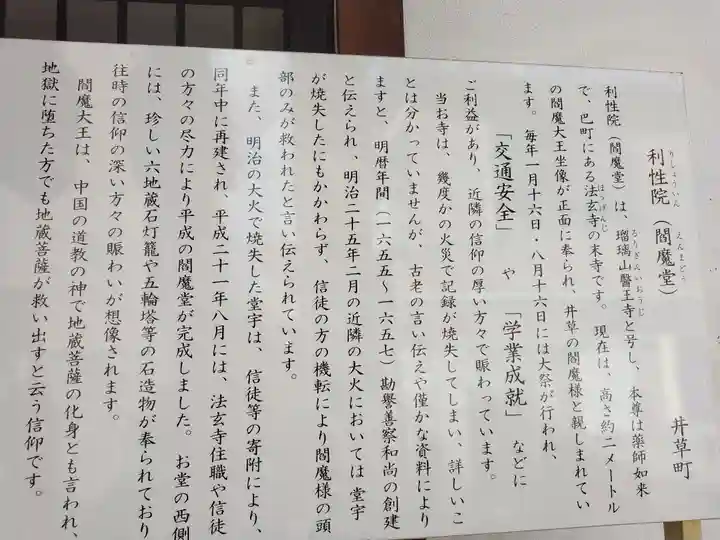 井草町
利性院（閻魔堂）
りしょういん えんまどう
利性院（閻魔堂）は、瑠璃山醫王寺と号し、本尊は薬師如来
るりざんいおうじ
で、巴町にある法玄寺の末寺です。現在は、高さ約二メートル
ほうげんじ
の閻魔大王坐像が正面に奉られ、井草の閻魔様と親しまれてい
ます。毎年一月十六日・八月十六日には大祭が行われ、
「交通安全」や「学業成就」などに
ご利益があり、近隣の信仰の厚い方々で賑わっています。
当お寺は、幾度かの火災で記録が焼失してしまい、詳しいこ
とは分かっていませんが、古老の言い伝えや僅かな資料により
ますと、明暦年間（一六五五～一六五七）勘譽善察和尚の創建
と伝えられ、明治二十五年二月の近隣の大火においては堂宇
が焼失したにもかかわらず、信徒の方の機転により閻魔様の頭
部のみが救われたと言い伝えられています。
また、明治の大火で焼失した堂宇は、信徒等の寄附により、
同年中に再建され、平成二十一年八月には、法玄寺住職や信徒
の方々の尽力により平成の閻魔堂が完成しました。お堂の西側
には、珍しい六地蔵石灯籠や五輪塔等の石造物が奉られており
往時の信仰の深い方々の賑わいが想像されます。
閻魔大王は、中国の道教の神で地蔵菩薩の化身とも言われ、
地獄に堕ちた方でも地蔵菩薩が救い出すと云う信仰です。